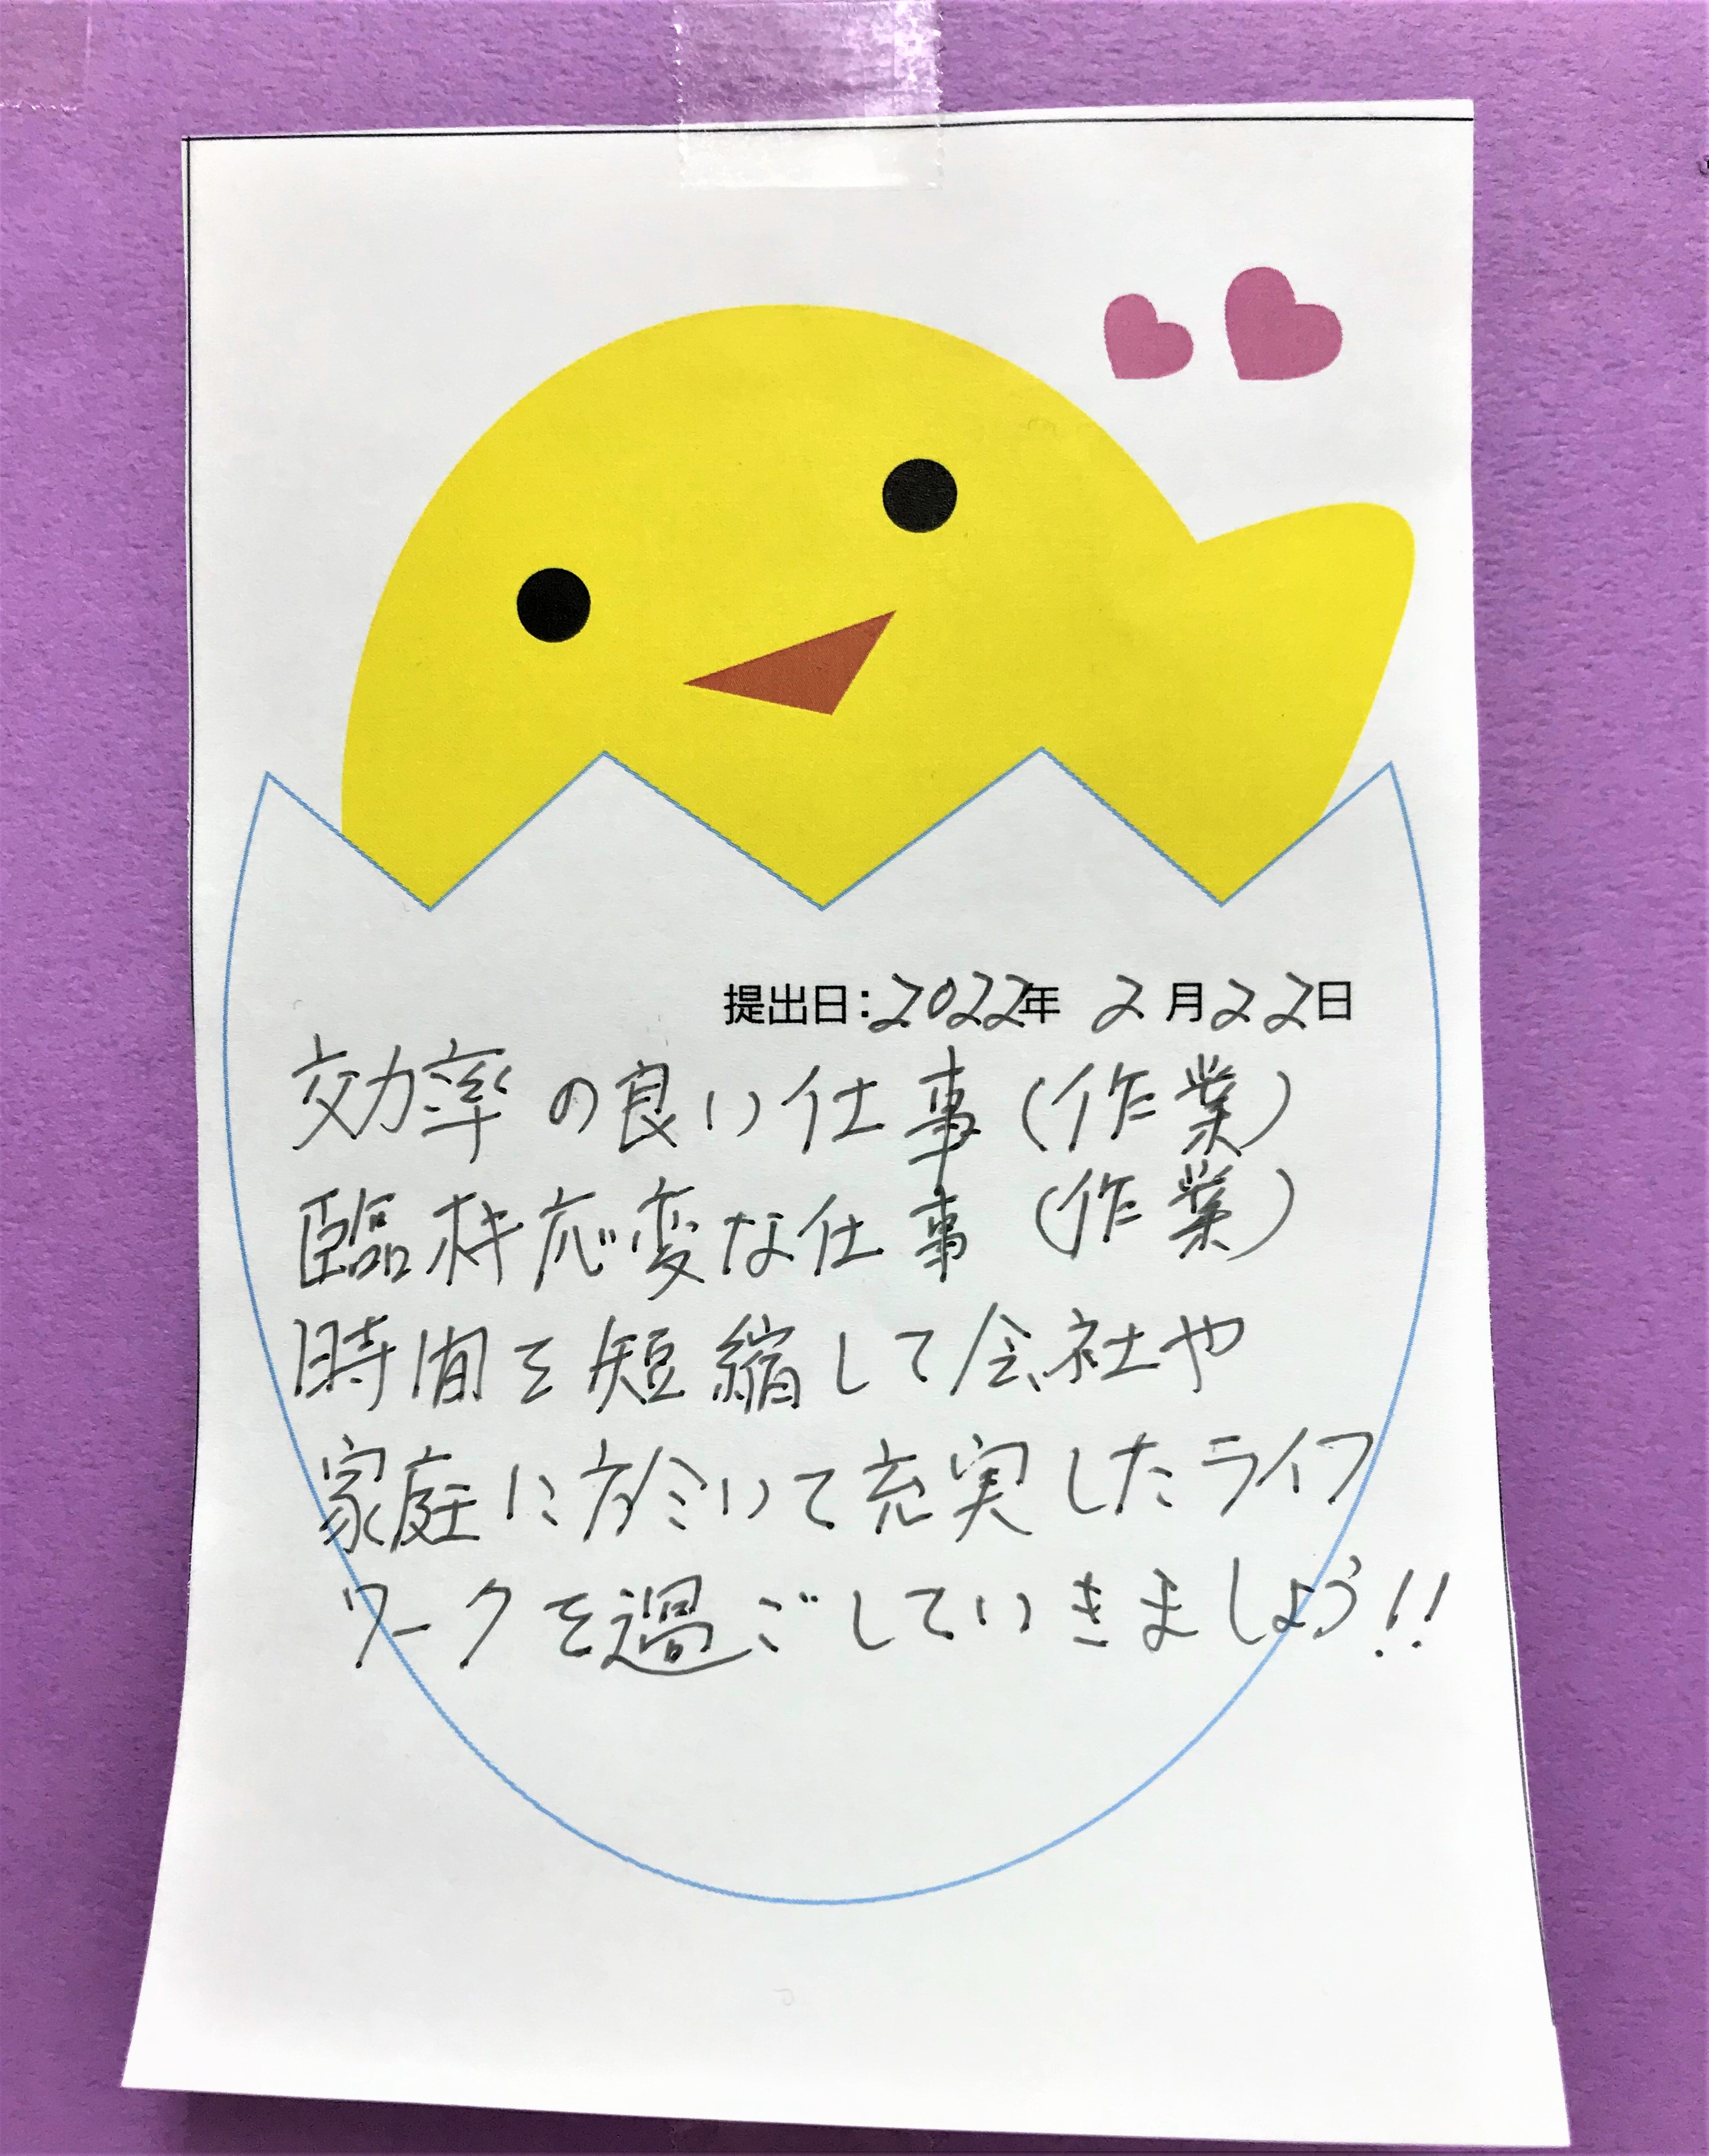 提出日：2022年 2月22日
効率の良い仕事（作業）
臨机応変な仕事（作業）
時間を短縮して会社や
家庭に於いて充実したライフ
ワークを過ごしていきましょう!!